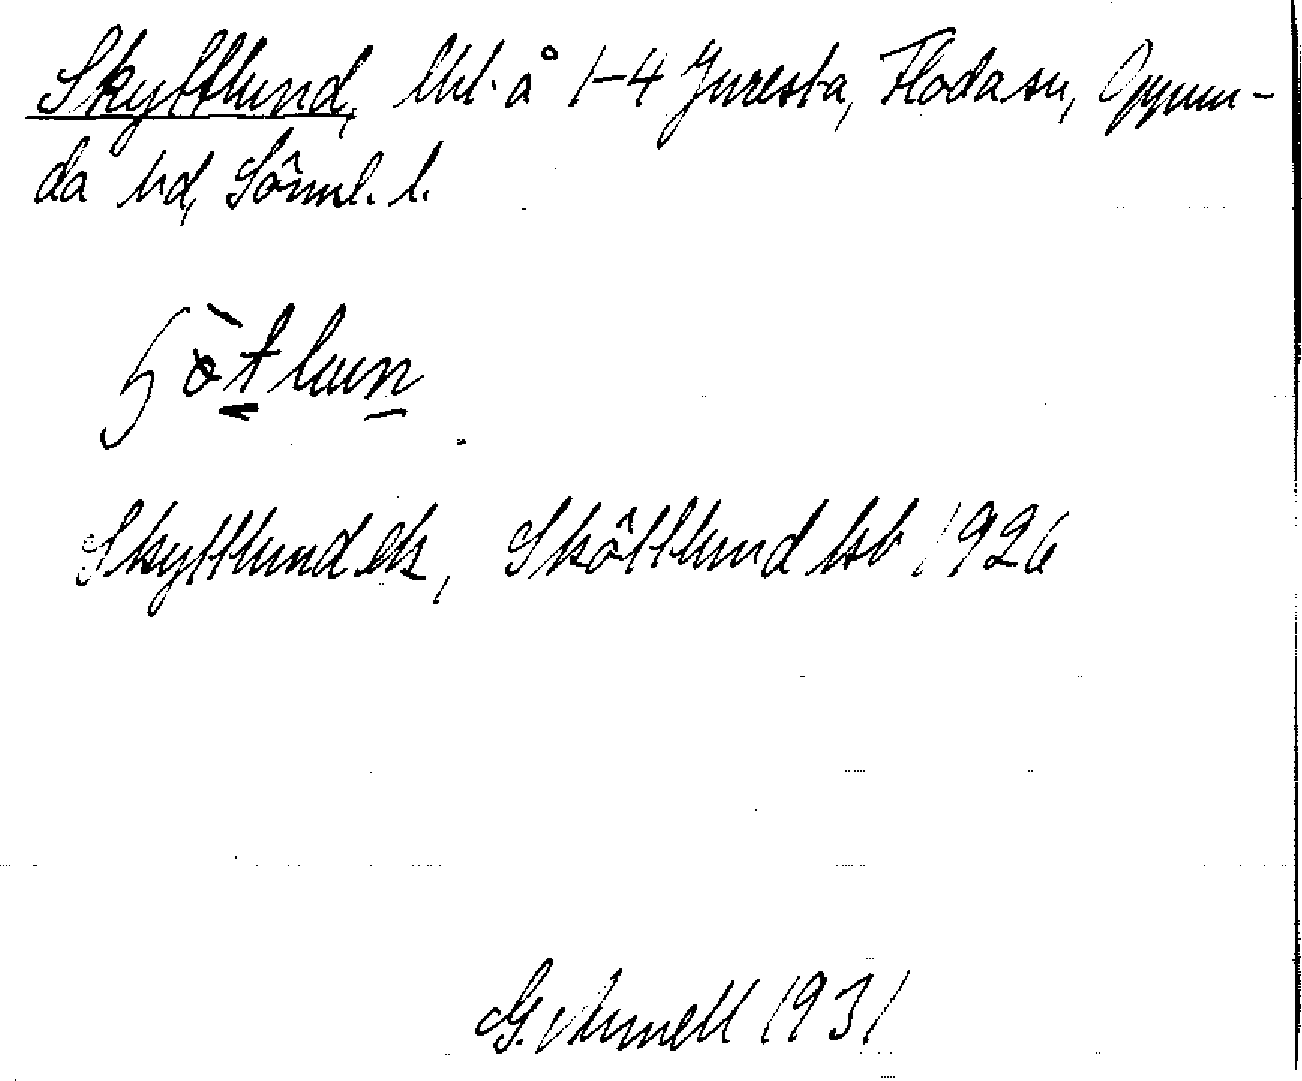 Skyttlund, lht. å 1-4 Juresta, Floda sn, Oppun-
da hd, Sörml. l.
ʃö̀tlun
Skyttlund ek, Sköttlund jsb 1926
G. Arnell 1931